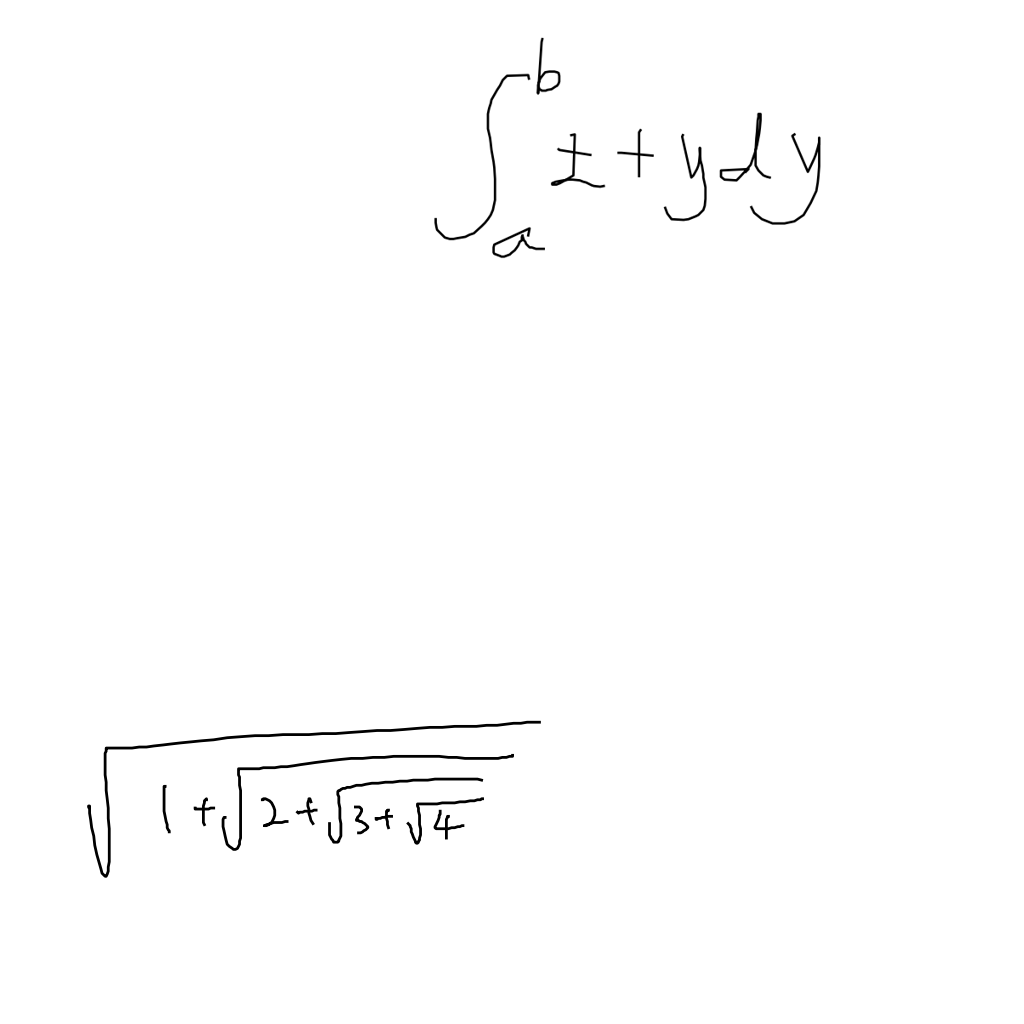 ∫_a^b ± + y dy
√(1+√(2+√(3+√4)))